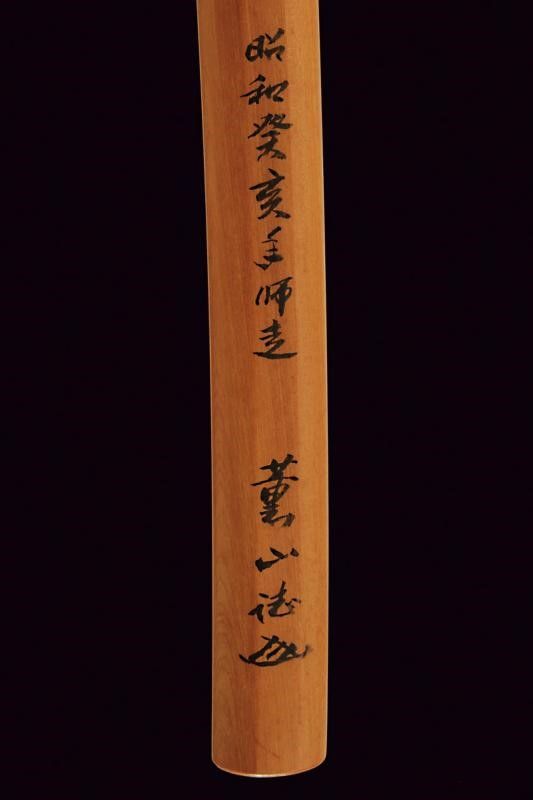 昭和癸亥年師走
薰山誌